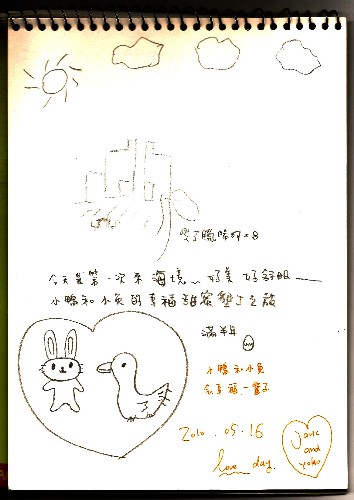 今天是第一次來海境~好美 好舒服
小鴨和小兔的幸福甜蜜墾丁之旅
滿半年
小鴨和小兔
會幸福一輩子
2010.05.16
love day.
Jane
and
yoko